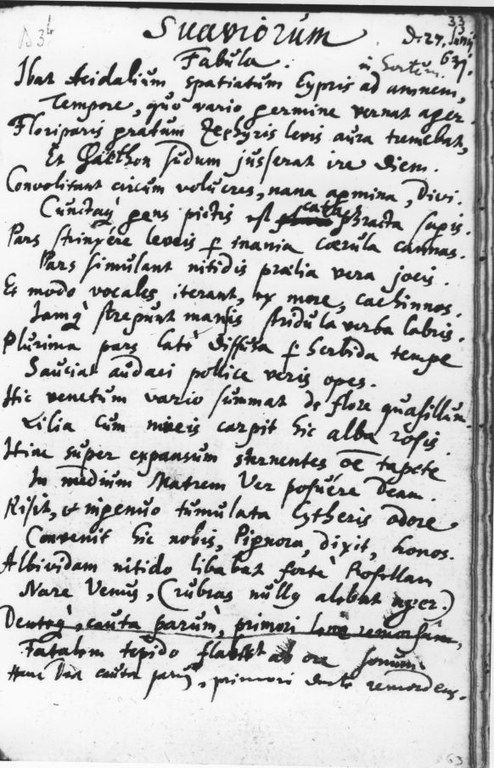 33
D. 27. Junij
Suaviorum
Fabula.
Ibat Acidalium spatiatum Cypris ad amnem,
Tempore, quo vario germine vernat ager.
Floriparis pratum Zephyris levis aura tremebat,
Et Phaethon sudum jusserat ire diem.
Convolitant circum volucres, nana agmina, Divi.
gens pictis
Pars stringere leveis inania caerula cannas.
Pars simulant nitidis praelia vera jocis.
Et modo vocales iterant, ex more, cachinnos.
Jamq strepunt stridula verba labris.
Plurima pars latè diffusa herbida tempe
Sauciat audaci pollice veris opes.
Hic venetum vario summat de flore quasillum
Lilia cum niveis carpit hic alba rosis
Hinc super expansum sternentes tapete
In medium Matrem Ver posuêre Deam.
Risit, et ingenuo tumulata Cytheris odore
Convenit hic nobis, Pignora, dixit, honos.
Albividam nitido libabat fortè Rosillam
Nare Venus, (rubras nullus alebat ager.)
cauta parùm, primori
Fatalem tepido ab ore sonum.
Hanc Dea cauta parùm, primori dente remordens.
63